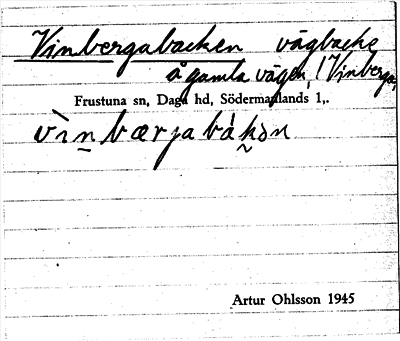 Vinbergabacken vägbacke
å gamla vägen, i Vinberga,
Frustuna sn, Daga hd, Södermanlands l,.
vìn bærjabákən
Artur Ohlsson 1945